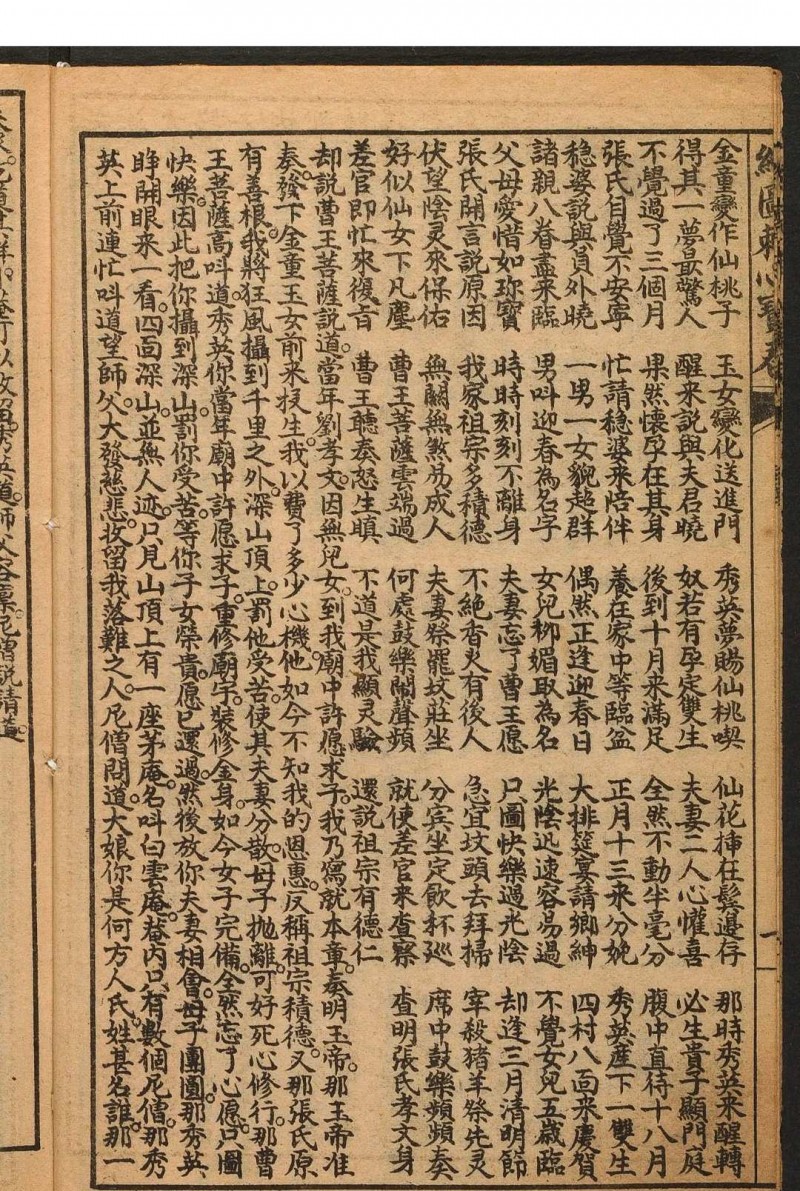 金童變作仙桃子　玉女變化送進門　秀英夢賜仙桃吃　仙花揷在鬓邉存　那時秀英来醒轉
得其一夢最驚人　醒来說與夫君曉　奴若有孕定雙生　夫妻二人心懽喜　必生貴子顯門庭
不覺過了三個月　果然懐孕在其身　後到十月来滿足　全然不動半毫分　腹中直待十八月
張氏自覺不安寧　忙請穏婆来陪伴　養在家中等臨盆　正月十三来分娩　秀英産下一雙生
穏婆說與員外曉　一男一女貌超群　偶然正逢迎春日　大排筵宴請鄉紳　四村八面来慶賀
諸親八眷盡来臨　男呌迎春為名字　女兒柳媚取為名　光陰迅速容易過　不覺女兒五歲臨
父母愛惜如珎寶　時時刻刻不離身　夫妻忘了曹王愿　只圖快樂過光陰　却逢三月清明節
張氏開言說原因　我家祖宗多積德　不絶香火有後人　急宜坟頭去拜掃　宰殺猪羊祭先灵
伏望陰灵来保佑　無關無煞昜成人　夫妻祭罷坟莊坐　分宾坐定飲杯廵　席中鼓樂頻頻奏
好似仙女下凡塵　曹王菩薩雲端過　何處鼓樂閙聲頻　就使差官来查察　查明張氏孝文身
差官即忙来復旨　曹王聽奏怒生瞋　不道是我顯灵驗　還說祖宗有德仁
却說曹王菩薩說道。當年劉孝文。因無兒女。到我廟中許愿求子。我乃寫就本章。奏明玉帝。那玉帝准
奏。發下金童玉女前来投生。我以費了多少心機。他如今不知我的恩惠。反稱祖宗積德。又那張氏原
有善根。我將狂風攝到千里之外。深山頂上。罰他受苦。使其夫妻分散。母子抛離。可好死心修行。那曹
王菩薩高呌道。秀英你當年廟中許愿求子。重修廟宇。裝修金身。如今女子完備。全然忘了心愿。只圖
快樂。因此把你攝到深山。罰你受苦。等你子女榮貴。愿已還過。然後放你夫妻相會。母子團圓。那秀英
睁開眼来一看。四面深山。並無人迹。只見山頂上有一座茅庵。名呌白雲庵。菴内只有數個尼僧。那秀
英上前連忙呌道。望師父大發慈悲。收留我落難之人。尼僧問道。大娘你是何方人氏。姓甚名誰。那一